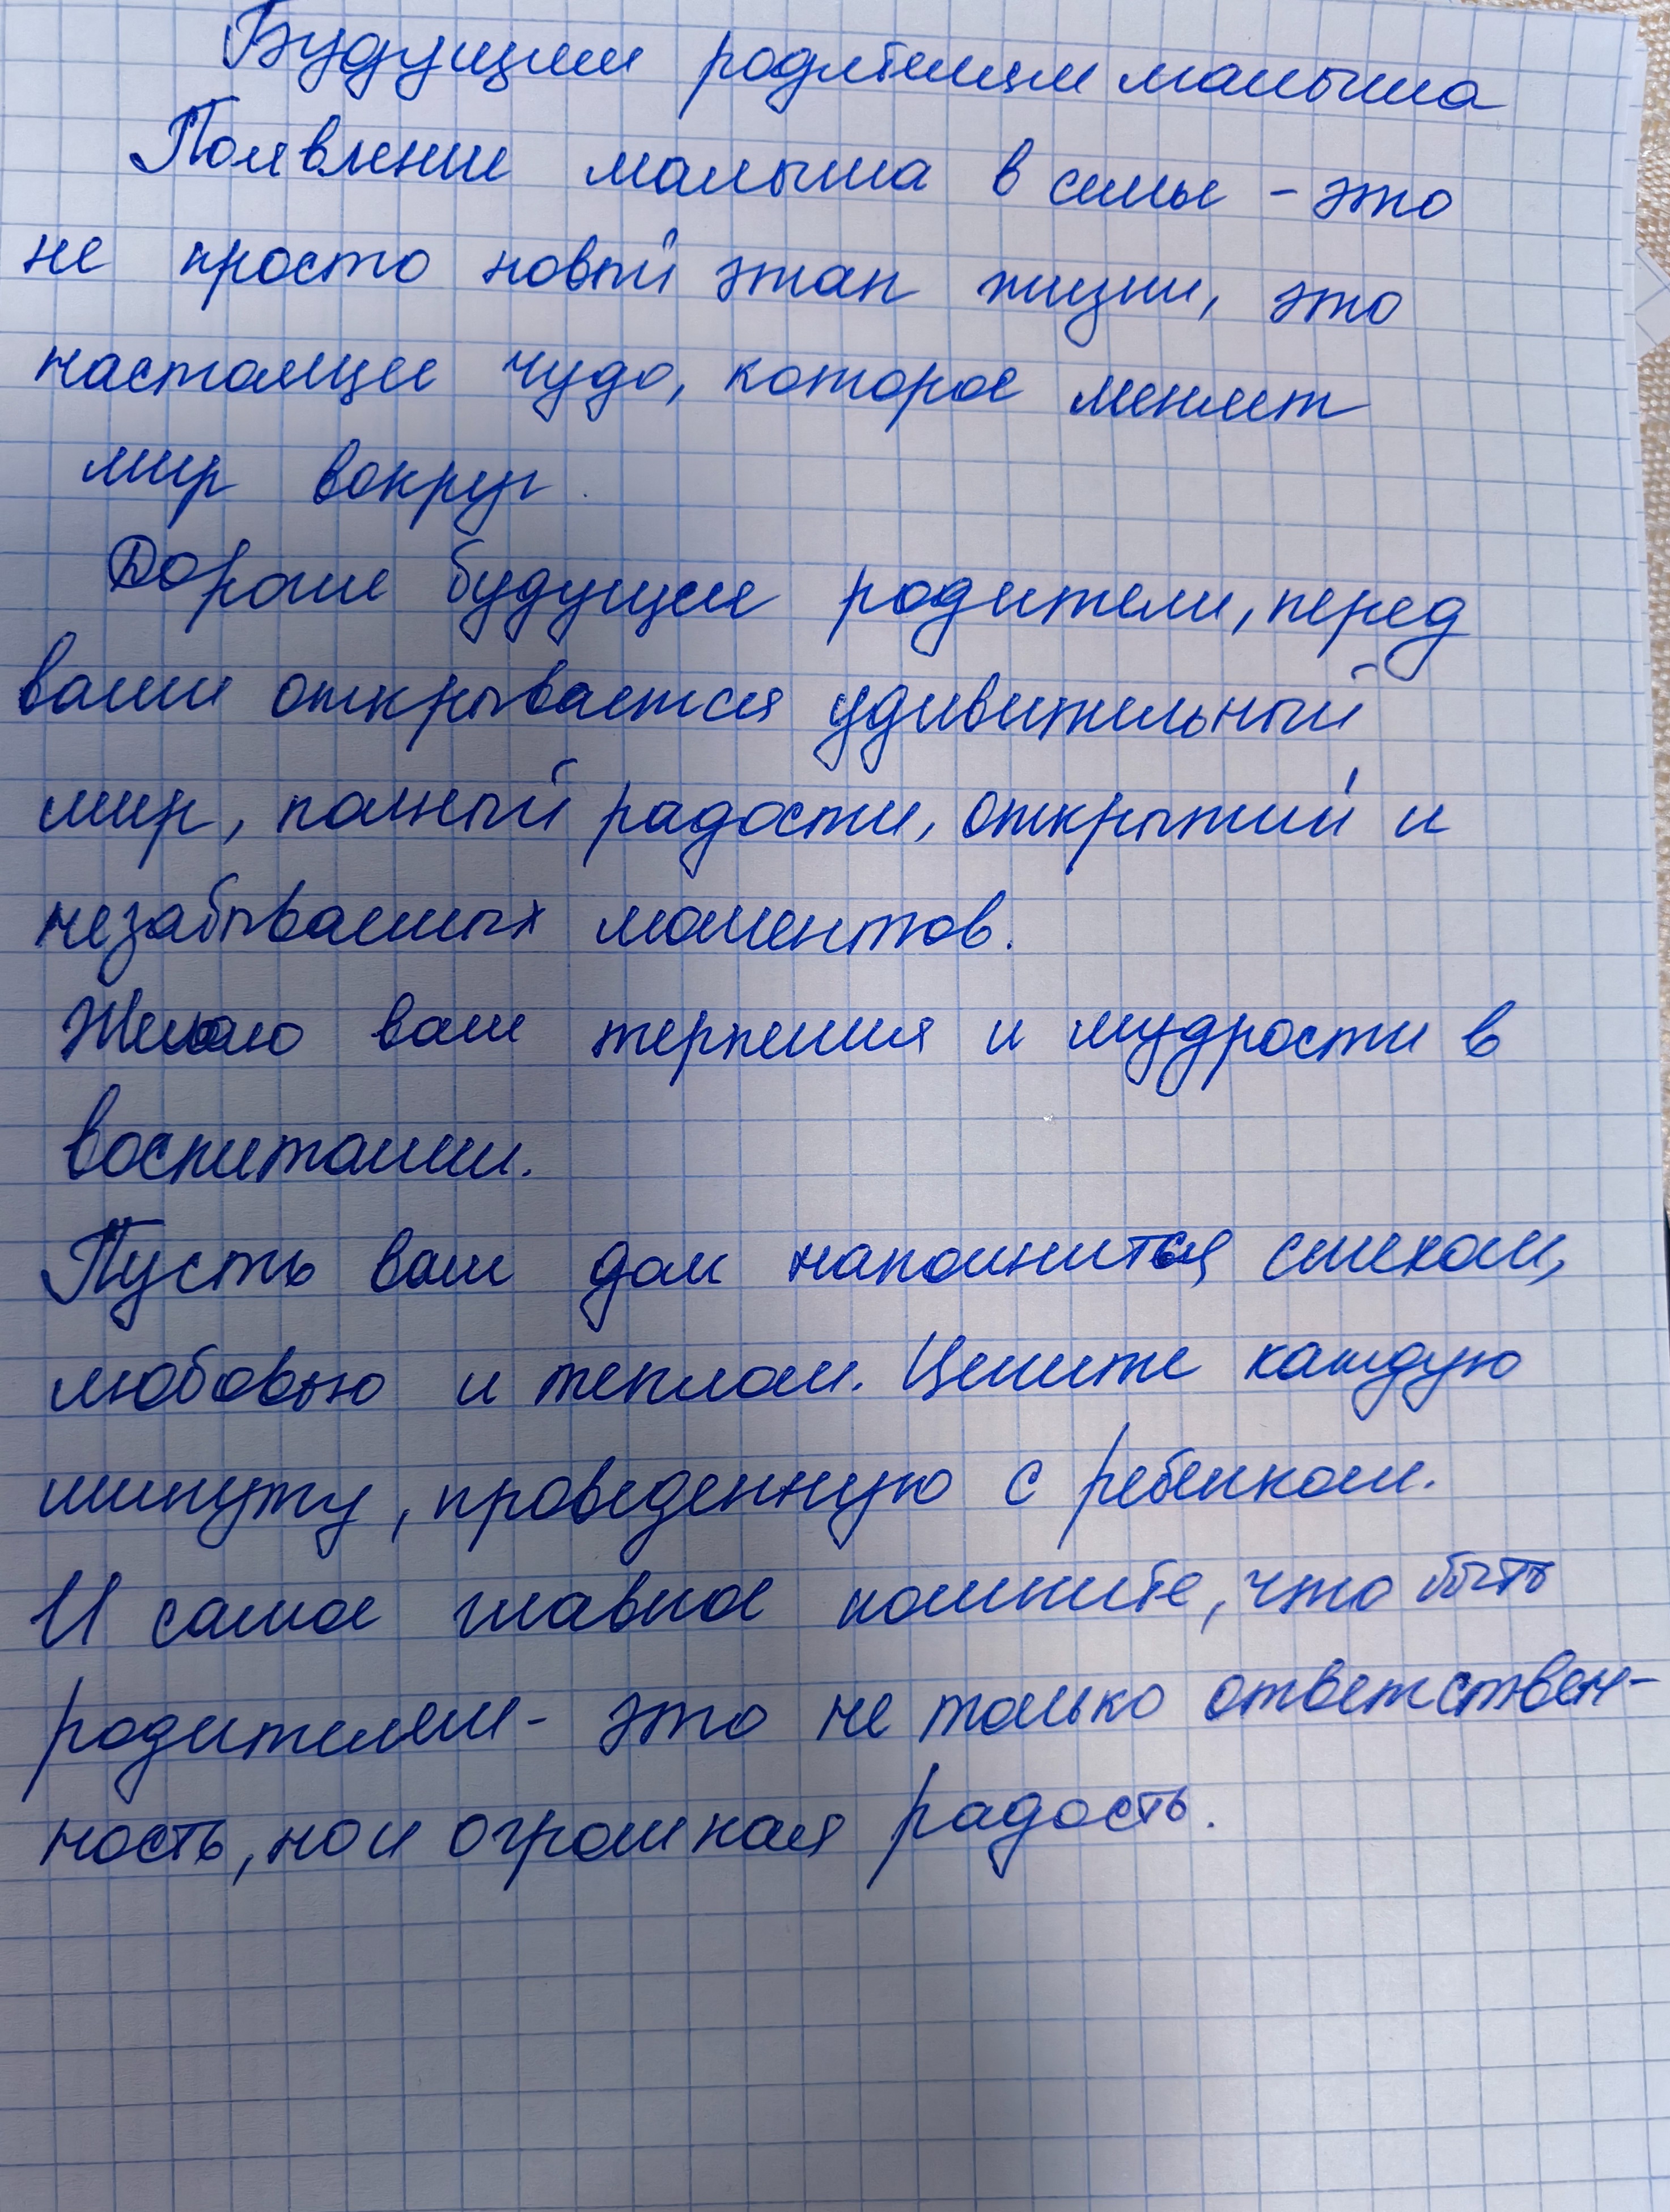 Будущим родителям малыша
Появление малыша в семье - это
не просто новый этап жизни, это
настоящее чудо, которое меняет
мир вокруг.
Дорогие будущие родители, перед
вами открывается удивительный
мир, полный радости, открытий и
незабываемых моментов.
Желаю вам терпения и мудрости в
воспитании.
Пусть ваш дом наполнится смехом,
любовью и теплом. Цените каждую
минуту, проведенную с ребенком.
И самое главное помните, что быть
родителем - это не только ответствен-
ность, но и огромная радость.